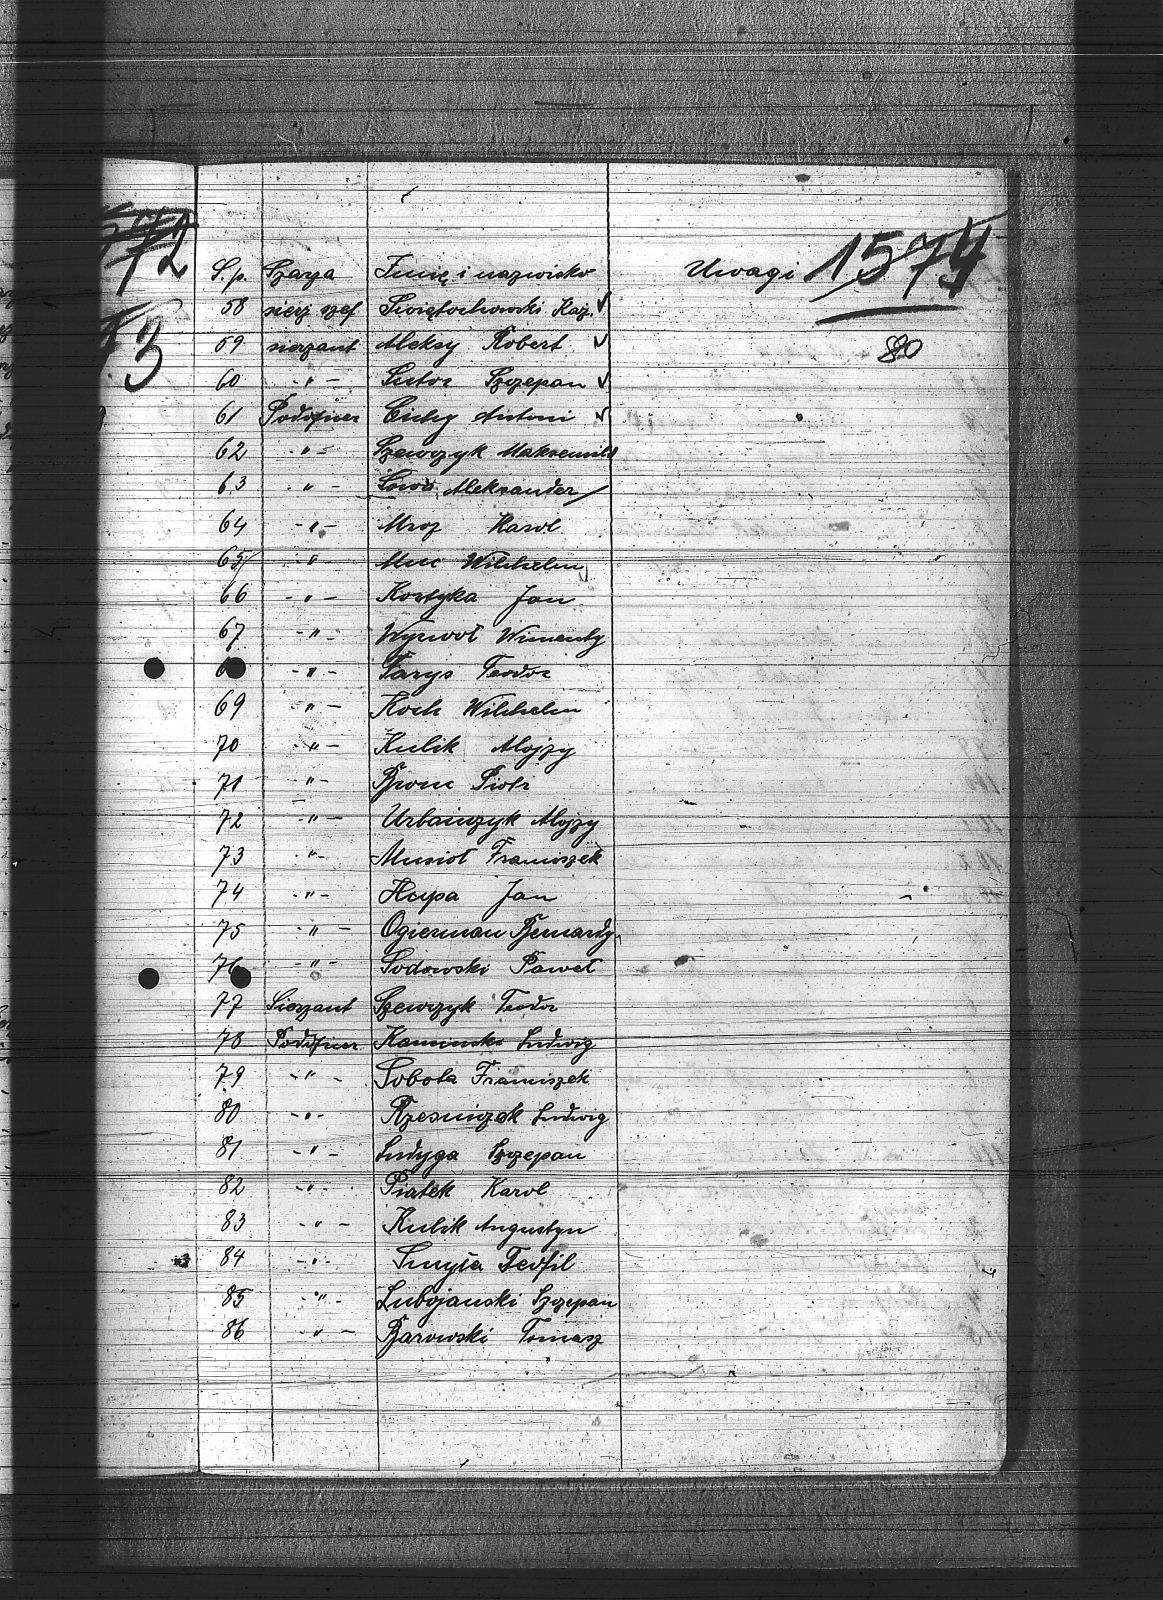 L.p. Szarża Imię i nazwisko Uwagi 1574
58 sierż szef Świętochowski Kaz.
80
59 sierżant Aleksy Robert
60 -"- Lutor Szczepan
61 Podoficer Cichy Antoni
62 -"- Szewczyk Maksemild
63 -"- Sowa Aleksander
64 -"- Mroz Karol
65 -"- Muc Wilhelm
66 -"- Kostyka Jan
67 -"- Wyrwoł
-"- Parys Teodor
69 -"- Koch Wilhelm
70 -"- Kulik Alojzy
71 -"- Bronc Piotr
72 -"- Urbańczyk Alojzy
73 -"- Musioł Franciszek
74 -"- Hupa Jan
75 -"- Ogierman Bernardy
76 -"- Sodowski Paweł
77 Sierżant Szewczyk Teodor
78 Podoficer Kaminski Ludwig
79 -"- Sobota Franciszek
80 -"- Rzesniczek Ludwig
81 -"- Ludyga Szczepan
82 -"- Piatek Karol
83 -"- Kulik Augustyn
84 -"- Smyła Teofil
85 -"- Lubojanski Szczepan
86 -"- Barowski Tomasz